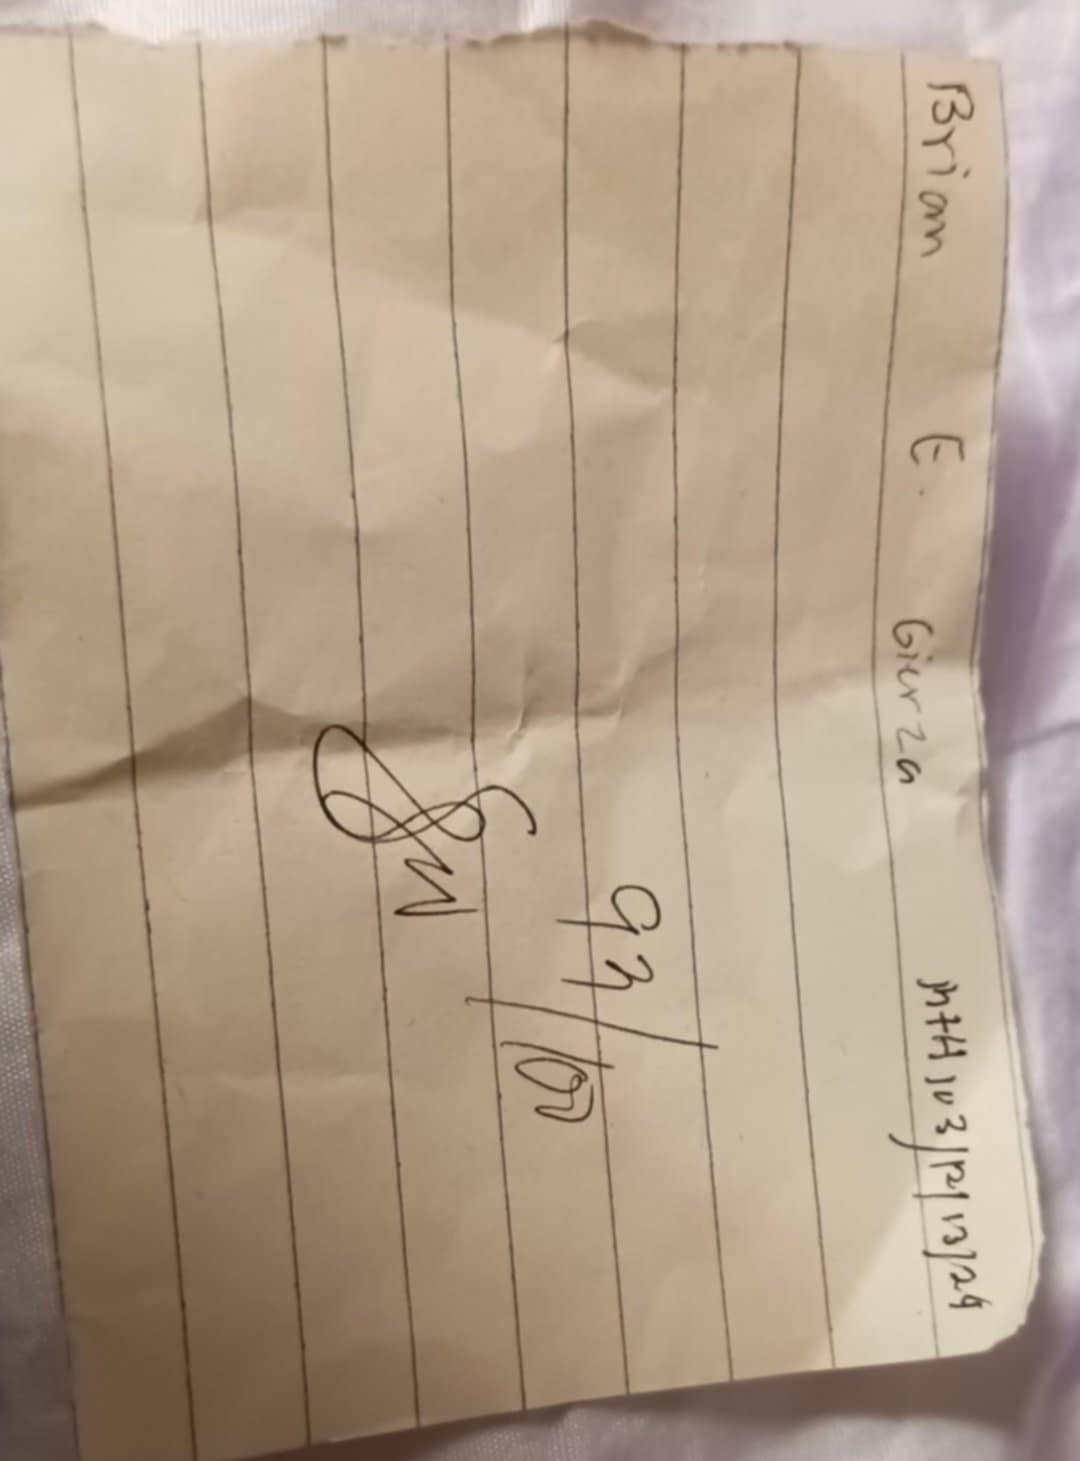 Brian E. Gierza MTH 103/12/13/24
93/100